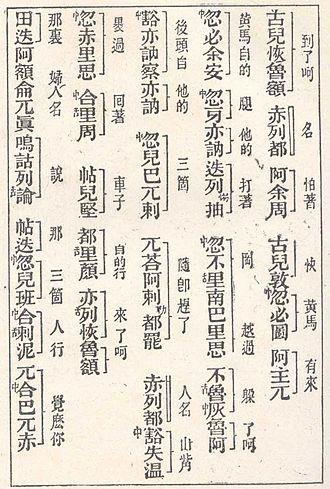 到了呵 名 怕著 快 黃馬 有來
古兒恢魯額 赤列都 阿余周 古兒敦中忽必圖 阿主兀
黃馬自的 腿 他的 打著 岡 越過 躲 了呵
中忽必余安 中忽牙亦訥 迭列抽 中忽不里南巴里思 不魯灰魯阿
後頭自 他的 三箇 隨即趕了 人名 山觜
豁亦訥察亦訥 中忽兒巴兀剌 兀荅阿剌都罷 赤列都豁失温
曩過 囘著 車子 自的行 來了呵
忽赤里思 中合里周 帖兒堅 都里顏 亦列恢魯額
那裏 婦人名 說 那 三箇 人行 覺麽你
田迭阿額侖兀真嗚詁列論 帖迭中忽兒班中合剌泥 兀中合巴兀赤